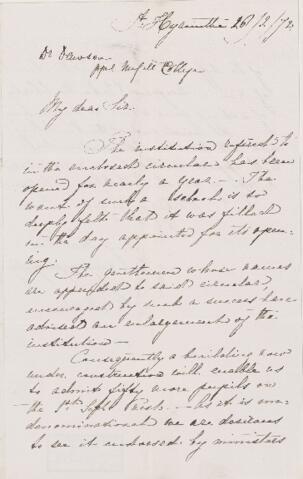 St. Hyacinthe 26/2/72
Dr Dawson
ppl McGill College
My dear Sir.
The institution referred to
in the enclosed circular has been
opened for nearly a year. — The
want of such a school is so
deeply felt that it was filled
on the day appointed for its open-
ing.
The gentlemen whose names
are appended to said circular,
encouraged by such a success have
advised an enlargement of the
institution —
Consequently a building now
under construction will enable us
to admit fifty more pupils on
the 1st Septr. — As it is un-
denominational we are desirous
to see it endorsed by ministers